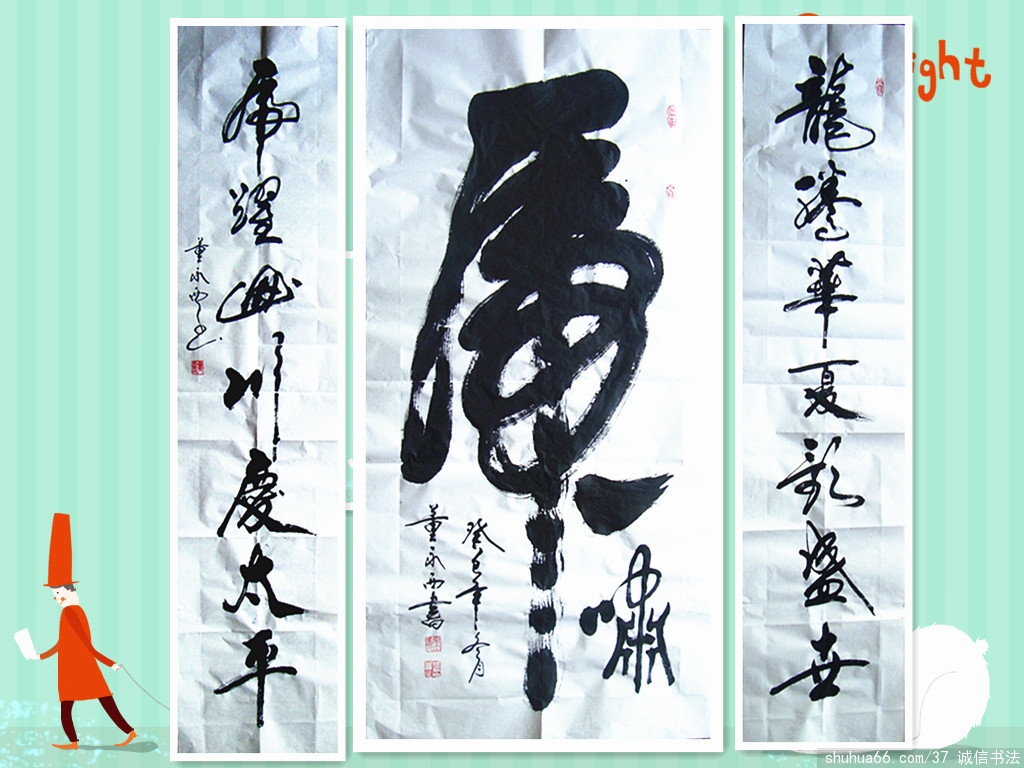 龍騰華夏歌盛世
虎
嘯
癸巳年冬月
董永西書
虎躍川慶太平
董永西书
ght
shuhua66.com/37 诚信书法